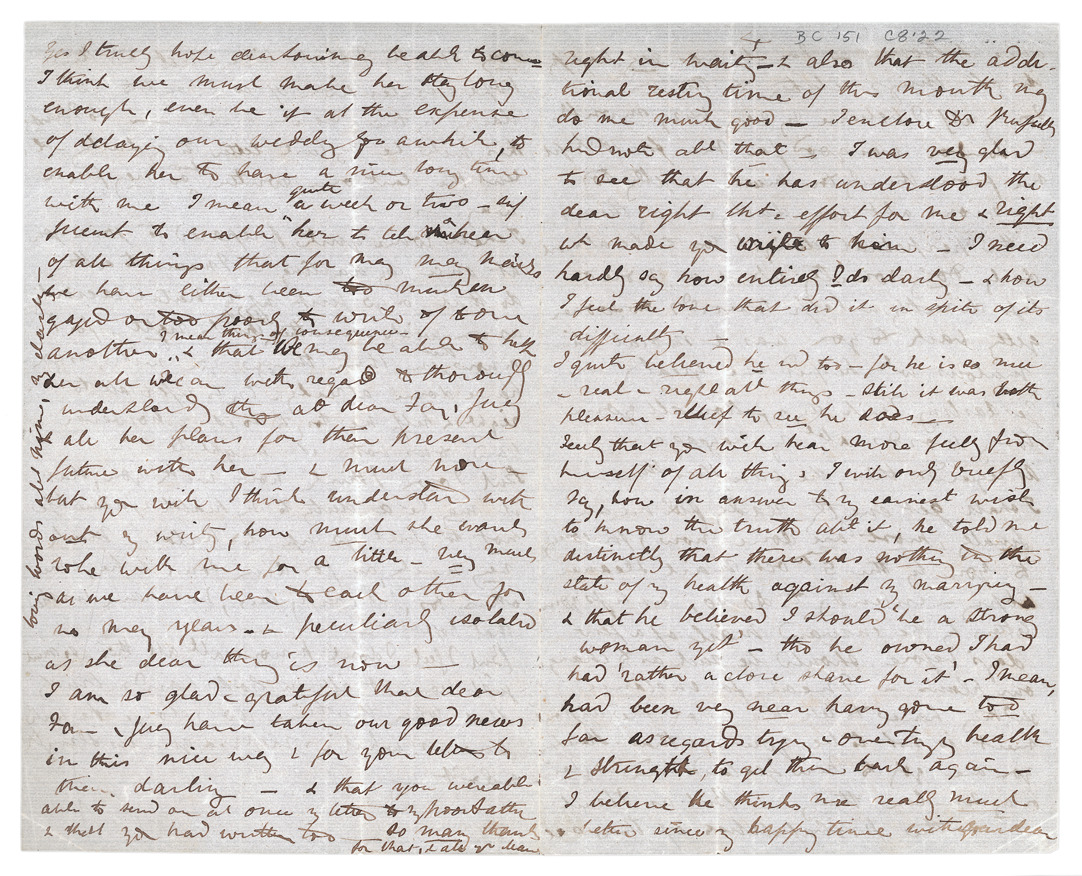 4 BC 151 C8'22
Yes I truly hope dear may be able to come
I think we must make her stay long
enough, even be if at the expense
of delaying our wedding for a while, to
enable her to have a nice long time
with me I mean quite a week or two – suf
ficient to enable her to tell hear
of all things that for may many
we have either been too much en
gaged or too poorly to write of to one
another I mean things of consequence – & that we may be able to help
her all we can with regard to thorough
understanding all dear
& all her plans for their present
future with her – & much more –
but you will I think understand with
out my writing, how much she wants
to be with me for a little – very much
as we have been to each other for
so many years – & peculiarly isolated
as she dear thing is now –
I am so glad & grateful that dear
have taken our good news
in this nice way & for your letter to
them, darling – & that you were able
able to send on at once my letter to my
& that you had written too – so many thanks
for that, & all yr dear
loving words all mine, my darling –
right in waiting – & also that the addi-
tional resting time of this month may
do me much good – I enclose Dr
kind note abt that – I was very glad
to see that he has understood the
dear right effort for me & right
wh made you write to him – I need
hardly say how entirely I do darling – & how
I feel the love that did it in spite of its
difficulty –
I quite believed he wd too – for he is so
real & right abt all things – still it was both
pleasure & relief to see he does –
that you will hear more fully from
himself of all things I will only briefly
say, how in answer to my earnest wish
to know the truth abt it, he told me
distinctly that there was nothing in the
state of my health against my marrying –
& that he believed I should 'be a strong
woman yet' – tho' he owned I had
had 'rather a close shave for it' – I mean,
had been very near having gone too
far as regards trying & overtrying health
& strength, to get them back again –
I believe he thinks me really much
better since my happy time with dear